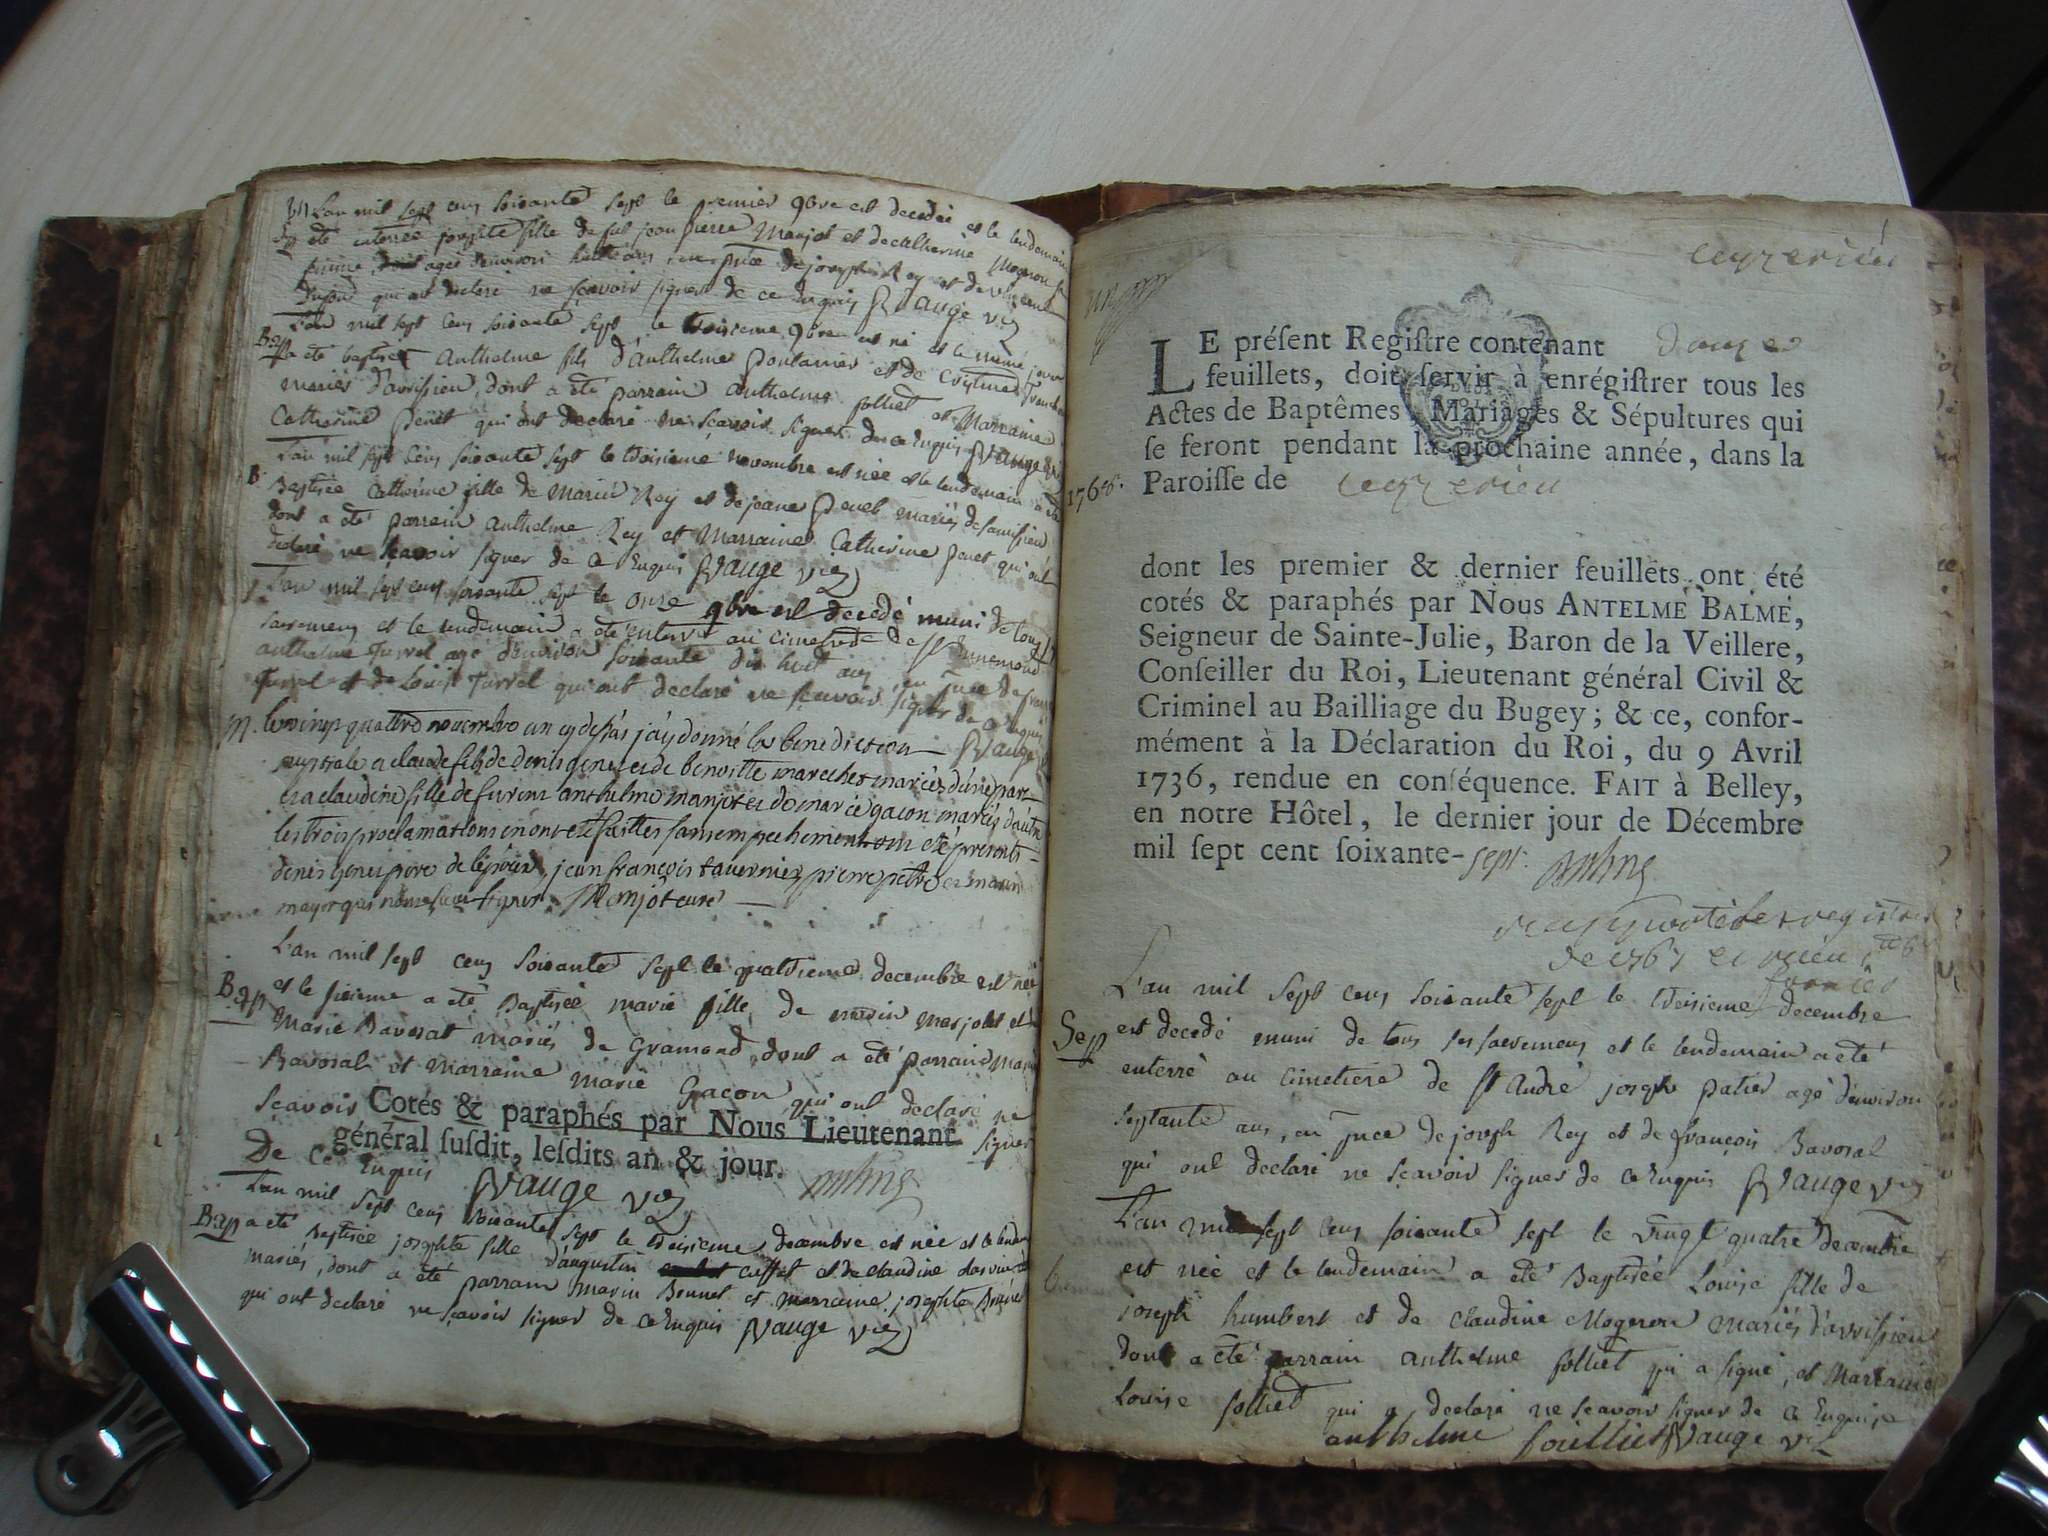 L'an mil sept cens soixante sept le premier 9bre est decedée et le lendemain
a été enterrée josephte fille de feu jean pierre Manjot et de catherine Mogeron
agée d'environ huit ans, en pnce de joseph Rey et de vincent
Dufour qui ont declaré ne sçavoir signer de ce enquis PVauge vic
Bap
L'an mil sept cens soixante sept le troisieme 9bre est né et le meme jour
a eté baptisé Anthelme fils d'Anthelme et de
mariés d'avrissieu, dont a été parrain anthelme folliet et Marraine
Catherine Penet qui ont declaré ne sçavoir signer de ce enquis PVauge vic
B
L'an mil sept cens soixante sept le troisieme novembre est née et le lendemain a été
Baptisée Catherine fille de Marin Rey et de jeane Penet mariés d'avrissieu
dont a été parrain anthelme Rey et Marraine Catherine Penet qui ont
declaré ne sçavoir signer de ce enquis PVauge vic
L'an mil sept cens soixante sept le onze 9bre est decedé muni de tous
sacremens et le lendemain a été enterré au cimetiere de St
anthelme Turrel agé d'environ soixante dix huit ans en pnce de
Turrel et de Louis Turrel qui ont declaré ne sçavoir signer de ce enquis
PVauge
M. le vingt quattre novembre an cy dessus j'ay donné la benediction
nuptiale a claude fils de denis genet et de benoitte mareches mariés d'une part
et a claudine fille de furent anthelme manjot et de marie gacon mariés d'autre
les trois proclamations en ont eté faittes sans empechement ont eté presents
denis genet pere de l'epoux, jean françois tavernier, pierre petre et marin
mayer qui n'ont sceu signer Manjot curé
L'an mil sept cens soixante sept le quatrieme decembre est née
Bap
et le sixieme a été Baptisée marie fille de marin marjollet et de
Marie Bavosat mariés de Gramond, dont a été parrain
Bavosat et marraine marie Gacon, qui ont declaré ne
sçavoir signer
Cotés & paraphés par Nous Lieutenant
général susdit, lesdits an & jour.
De ce enquis PVauge vic
L'an mil sept cens soixante sept le troisieme decembre est née et le lendemain
Bap
a été Baptisée josephte fille d'augustin cusset et de claudine
mariés, dont a été parrain marin Bonnet et marraine josephte
qui ont declaré ne sçavoir signer de ce enquis PVauge vic
ceyzerieu
LE préſent Regiſtre contenant douze
feuillets, doit ſervir à enrégiſtrer tous les
Actes de Baptêmes, Mariages & Sépultures qui
ſe feront pendant la prochaine année, dans la
1768.
Paroiſſe de ceyzerieu
dont les premier & dernier feuillets ont été
cotés & paraphés par Nous ANTELME BALME,
Seigneur de Sainte-Julie, Baron de la Veillere,
Conſeiller du Roi, Lieutenant général Civil &
Criminel au Bailliage du Bugey; & ce, confor-
mément à la Déclaration du Roi, du 9 Avril
1736, rendue en conſéquence. FAIT à Belley,
en notre Hôtel, le dernier jour de Décembre
mil ſept cent ſoixante-sept.
de 1767
L'an mil sept cens soixante sept le troisieme decembre
Sep
est decedé muni de tous ses sacremens et le lendemain a eté
enterré au cimetiere de St André joseph patier agé d'environ
septante ans, en pnce de joseph Rey et de françois Bavosat
qui ont declaré ne sçavoir signer de ce enquis PVauge vic
L'an mil sept cens soixante sept le vingt quatre decembre
est née et le lendemain a eté Baptisée Louise fille de
joseph humbert et de claudine Mogeron mariés d'avrissieu
dont a eté parrain anthelme folliet qui a signé, et Marraine
Louise folliet qui a declaré ne sçavoir signer de ce enquise
anthelme foulliet PVauge vic